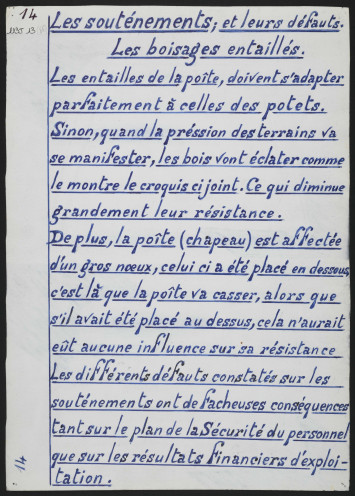 14
1135 13
Les souténements, et leurs défauts.
Les boisages entaillés.
Les entailles de la poîte, doivent s'adapter
parfaitement à celles des potets.
Sinon, quand la préssion des terrains va
se manifester, les bois vont éclater comme
le montre le croquis ci joint. Ce qui diminue
grandement leur résistance.
De plus, la poîte (chapeau) est affectée
d'un gros nœux, celui ci a été placé en dessous,
c'est là que la poîte va casser, alors que
s'il avait été placé au dessus, cela n'aurait
eût aucune influence sur sa résistance
Les différents défauts constatés sur les
souténements ont de facheuses conséquences
tant sur le plan de la Sécurité du personnel
que sur les résultats financiers d'exploi-
tation.
14